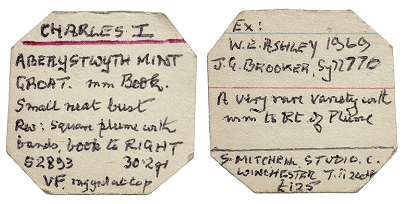 CHARLES I
ABERYSTWYTH MINT
GROAT. mm Book.
Small neat bust
Rev: square plume with
bands, book to RIGHT
S2893 30.2gr
VF, ragged at top
Ex:
W.E. ASHLEY 1969
J.G. BROOKER, 770
A very rare variety with
mm to Rt of Plume
S. MITCHELL STUDIO. C.
WINCHESTER
£125